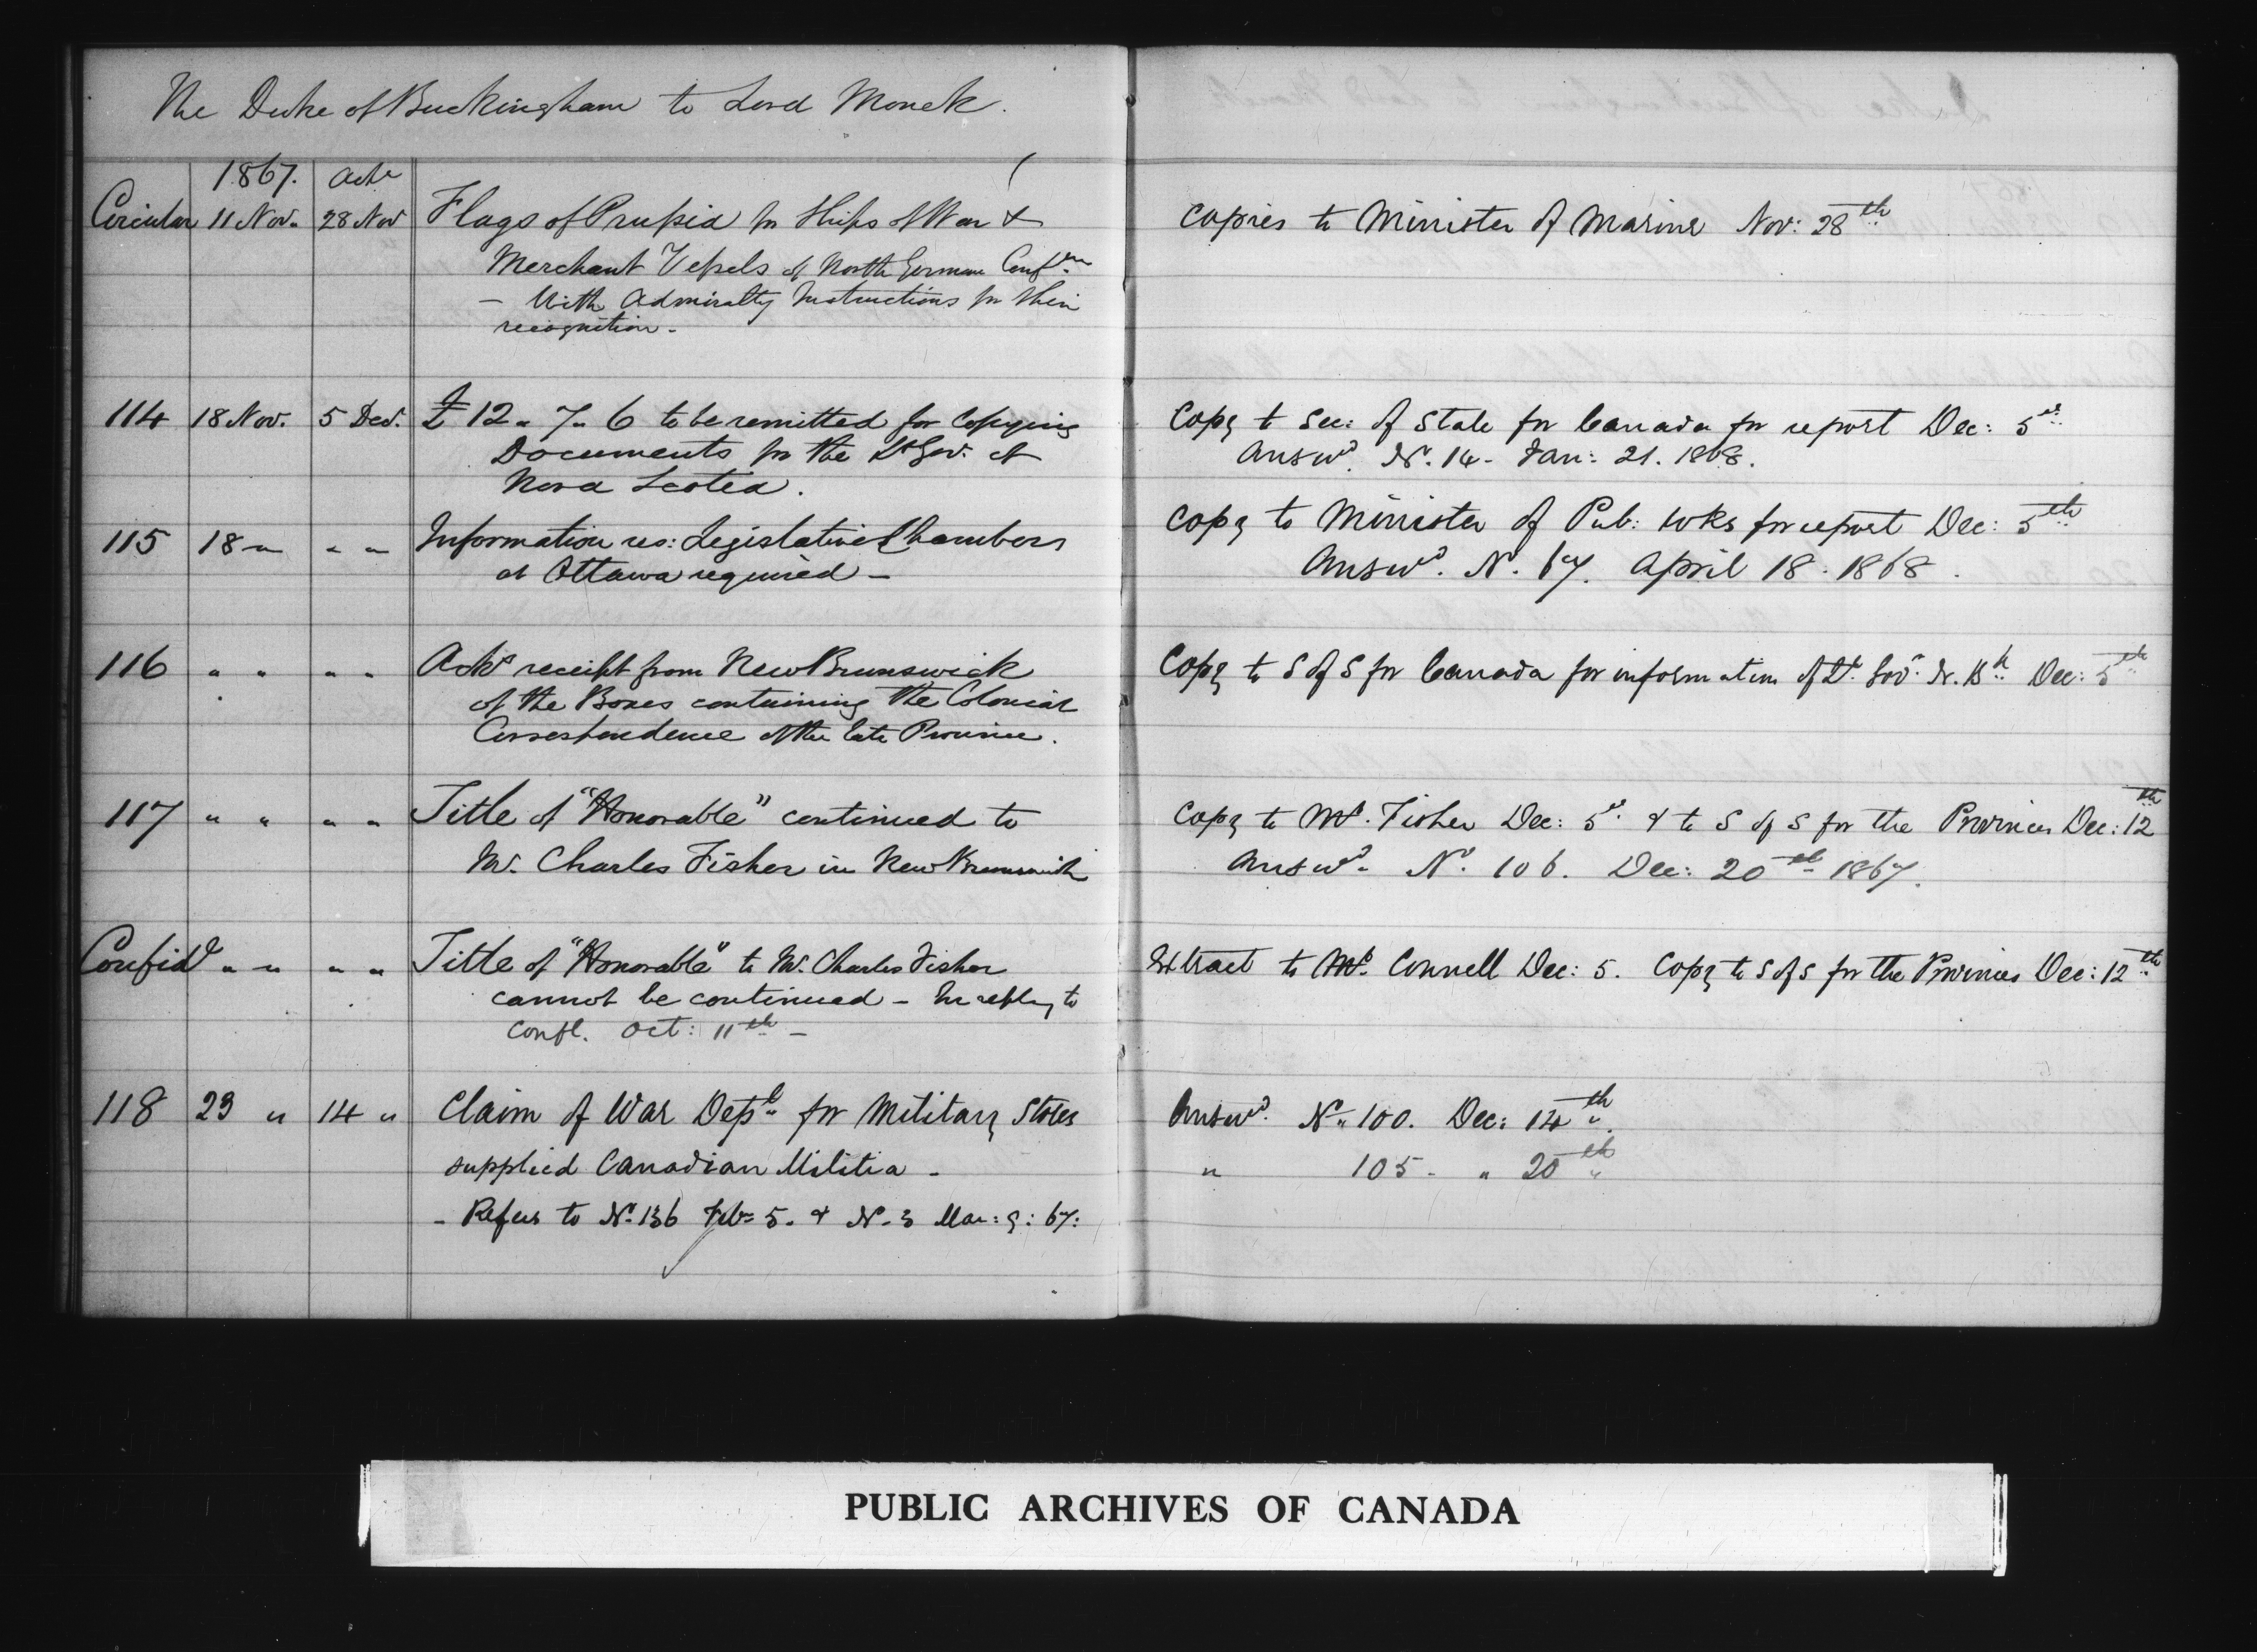 The Duke of Buckingham to Lord Monck.
1867. Ack^d
Circular 11 Nov. 28 Nov Flags of Prussia for Ships of War & Copies to Minister of Marine Nov: 28^th
Merchant Vessels of North German Conf^on
— With Admiralty Instructions for their
recognition -
114 18 Nov. 5 Dec. £12 " 7 " 6 to be remitted for Copying Copy to Sec: of State for Canada for report Dec: 5^th
Documents for the Lt Gov. of Answ^d. No. 14 - Jan: 21. 1868.
Nova Scotia.
115 18 " " " Information res: Legislative Chambers Copy to Minister of Pub: Wks for report Dec: 5^th
at Ottawa required - Answ^d. No. 67. April 18. 1868.
116 " " " " Ack^s receipt from New Brunswick Copy to S of S for Canada for information of Lt. Gov^r. N. B^k Dec: 5^th
of the Boxes containing the Colonial
Correspondence of the late Province.
117 " " " " Title of "Honorable" continued to Copy to Mr. Fisher Dec: 5^th & to S of S for the Provinces Dec: 12^th
Mr. Charles Fisher in New Brunswick Answ^d. No. 106. Dec: 20^th 1867.
Confid^l " " " " Title of "Honorable" to Mr. Charles Fisher Extract to Mr. Connell Dec: 5. Copy to S of S for the Provinces Dec: 12^th
cannot be continued - In reply to
Confl. Oct: 11^th -
118 23 " 14 " Claim of War Dep^t for Military Stores Answ^d. No. 100. Dec: 14^th.
supplied Canadian Militia - " 105 - " 20^th
- Refers to No. 136 Feb: 5. & No. 3 Mar: 9: 67:
PUBLIC ARCHIVES OF CANADA